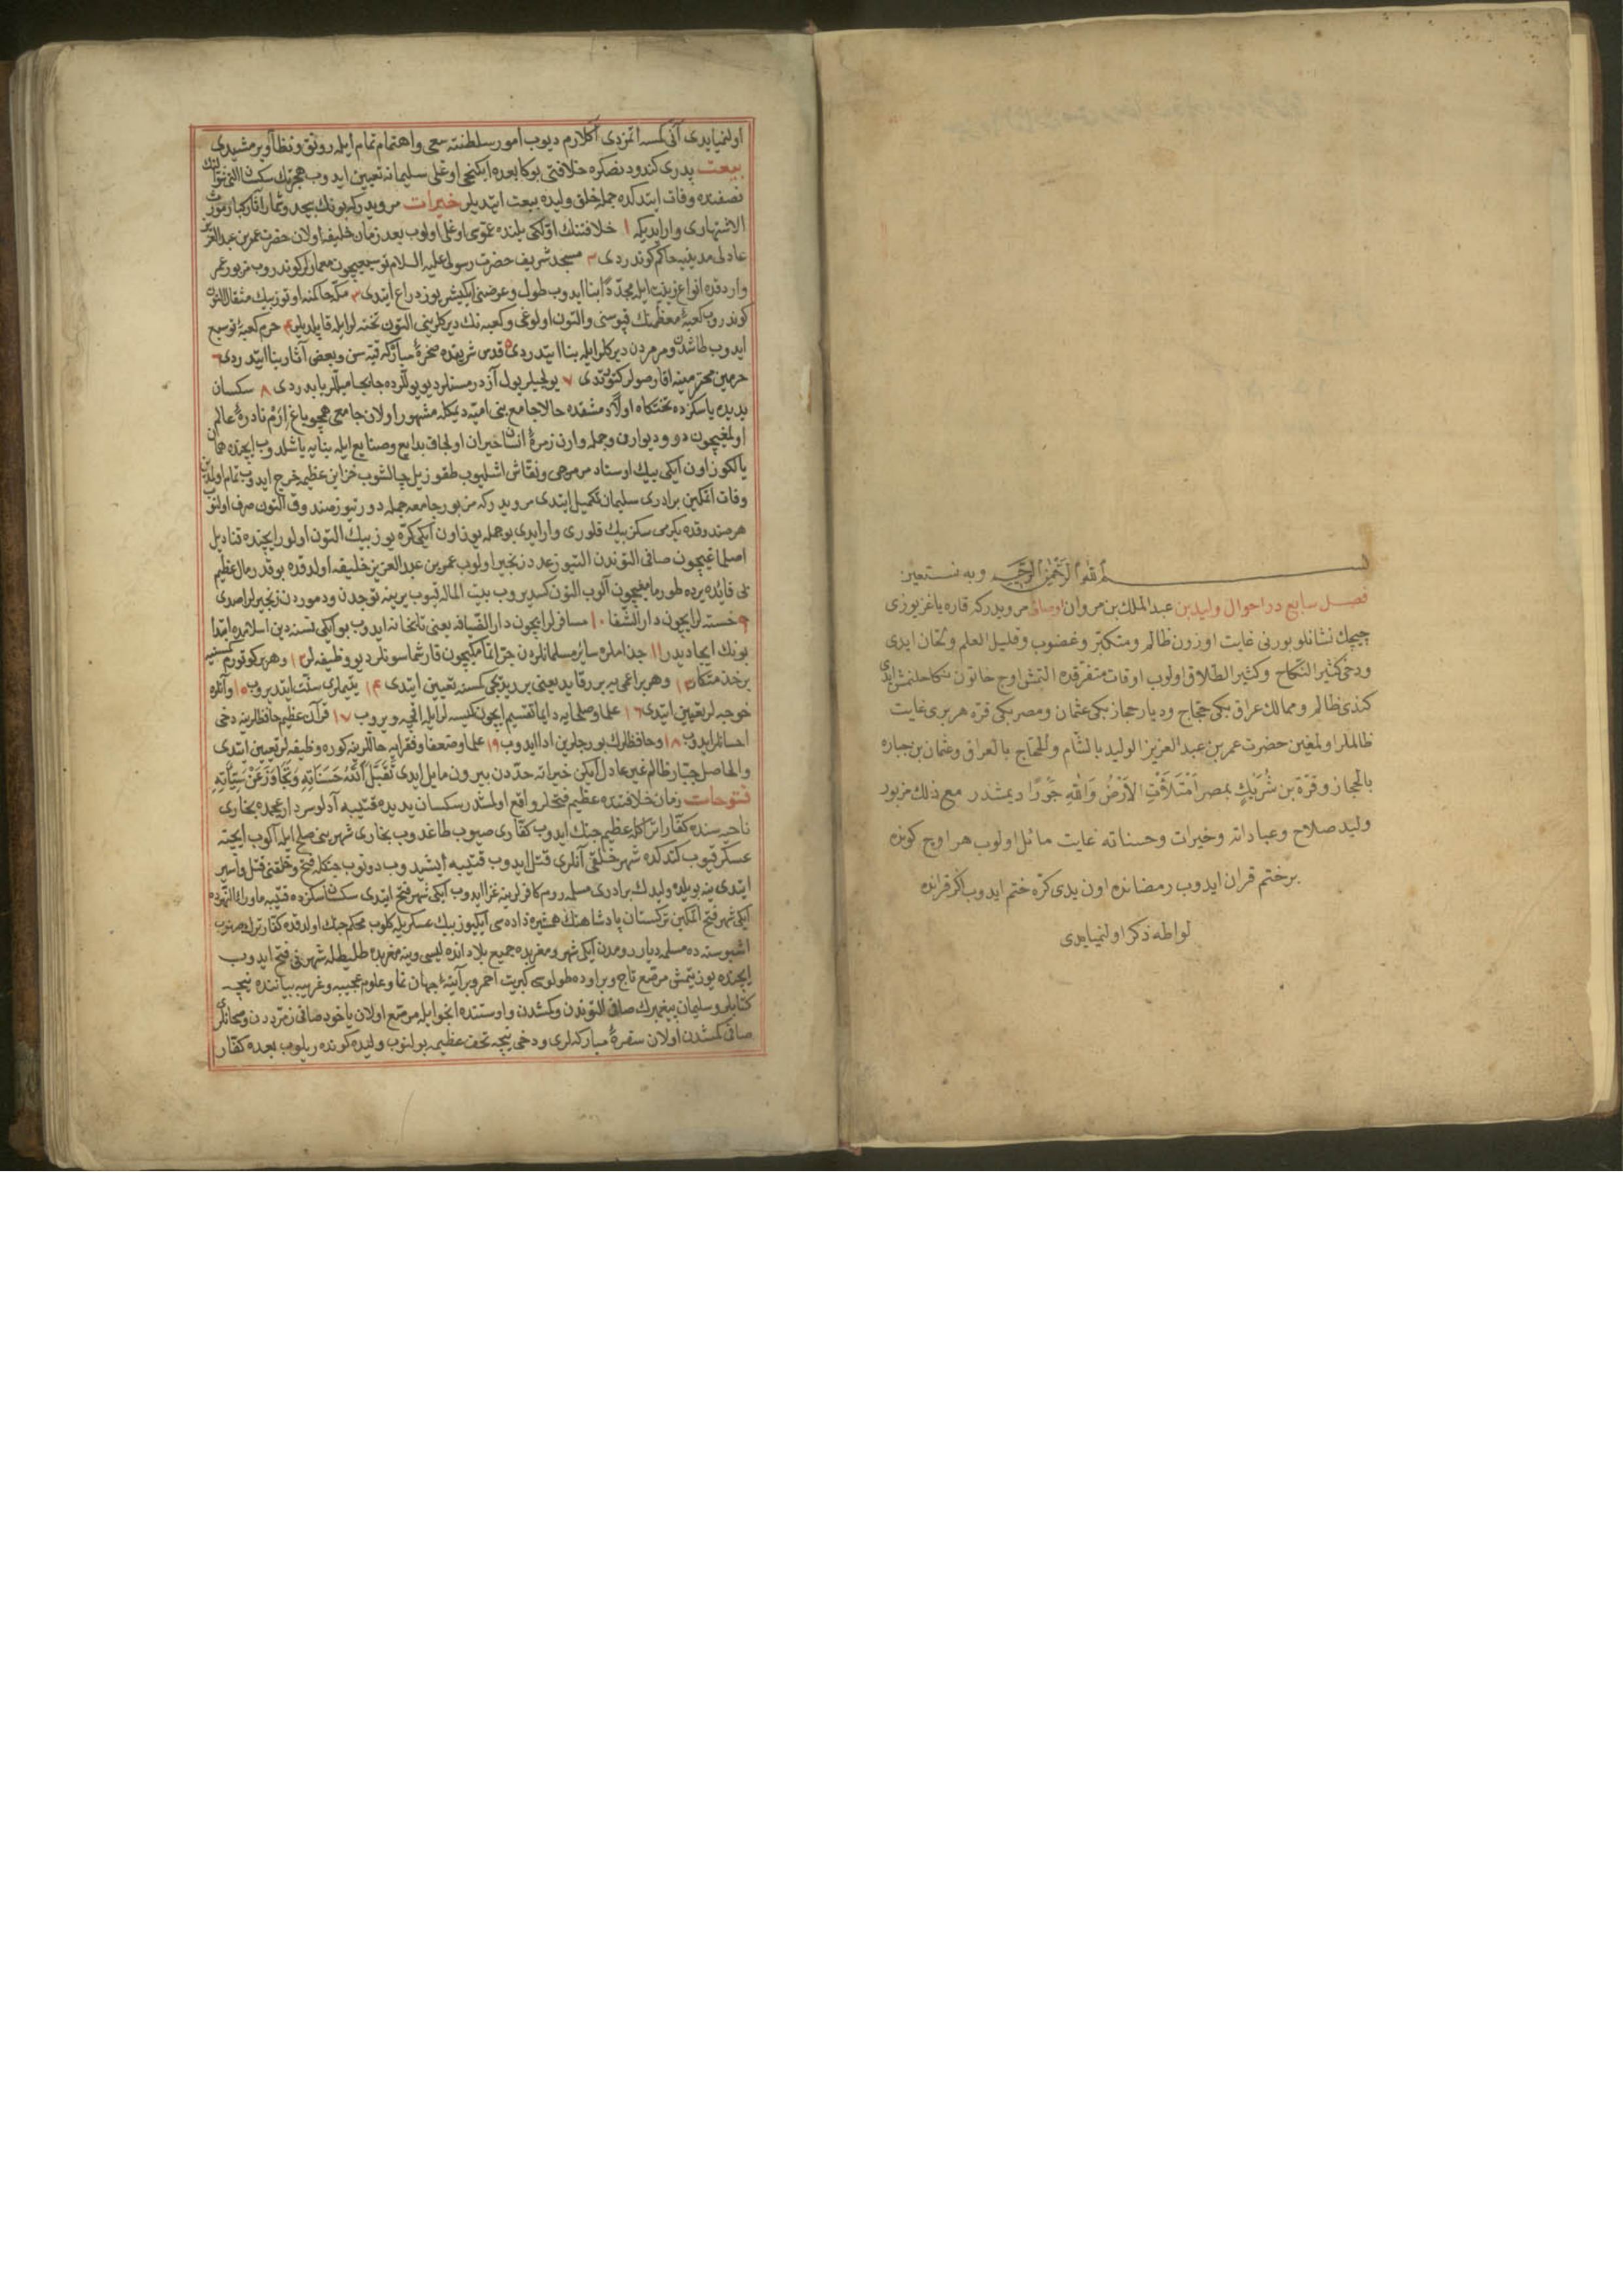 بسم الله الرحمن الرحيم وبه نستعين
فصل سابع در احوال وليد بن عبد الملك بن مروان اوصافى مرويدركه قاره ياغز يوزى
چيچك نشانلو بورنى غايت اوزون ظالم ومتكبّر وغضوب وقليل العلم ولحّان ايدى
ودخى كثير النّكاح وكثير الطّلاق اولوب اوقات متفرّقده التمش اوچ خاتون نكاحلنمش ايدى
كندى ظالم وممالك عراق بكى حجّاج وديار حجاز بكى عثمان ومصر بكى قرّه هر برى غايت
ظالملر اولمغين حضرت عمر بن عبد العزيز الوليد بالشّام والحجّاج بالعراق وعثمان بن جباره
بالحجاز وقرّة بن شُرَيْكٍ بمصر اَمْتَلأَتْ الاَرْضُ وَاللهِ جَوْرًا ديمشدر مع ذلك مزبور
وليد صلاح وعباداته وخيرات وحسناته غايت مائل اولوب هر اوچ كونده
بر ختم قران ايدوب رمضانده اون يدى كرّه ختم ايدوب اكر قرانده
لواطه ذكر اولنميايدى
اولنميايدى آنى كمسه ائمزدى اكلارم ديوب امور سلطنته سعى واهتمام تمام ايله رونق ونظام ويرمشيدى
بيعت پدرى كندودنصكره خلافتى بوكا بعده ايكنجى اوغلى سليمانه تعيين ايدوب هجرتك سكسان التنجى
نصفنده وفات ايتدكده جمله خلق وليده بيعت ايتديلر خيرات مرويدركه بونك بيحد وشمار آثار كبار
الاشتهارى وار ايديكه ١ خلافتنك اوّلكى يلنده عمّوسى اوغلى اولوب بعد زمان خليفه اولان حضرت عمر بن عبد العزيز
عادلى مدينيه حاكم كوندردى ٢ مسجد شريف حضرت رسولى عليه السلام توسيعيچون معمارلر كوندروب مزبور عمر
واردقده انواع زينت ايله مجدّدًا بنا ايدوب طول وعرضنى ايكيشر يوز ذراع ايتدى ٣ مكّه حاكمنه اوتوز بيك مثقال التون
كوندروب كعبۀ معظّمنك قپوسنى والتون اولوغى وكعبه نك ديركلرينى التون تخته لرايله قاپلديلر ٤ حرم كعبۀ توسيع
ايدوب طاشدن ومرمردن ديركلر ايله بنا ايتدردى ٥ قدس شريفده صخرۀ مباركه قبّه سن وبعضى آثار بنا ايتدردى ٦
حرمين محترمينه اقار صولر كتورتدى ٧ يولجيلر يول آزدرمسنلر ديو يوللرده جابجا ميللر ياپدردى ٨ سكسان
يديده ياسكزده تختكاه اولان دمشقده حالا جامع بنى اميّه ديمكله مشهور اولان جامعى همچو باغ اِرَمْ نادرۀ عالم
اولمغيچون در وديوارى وجمله وارن زمرۀ انسان حيران اولجاق بدايع وصنايع ايله بنايه باشلدوب ايچنده همان
يالكوز اون ايكى بيك اوستاد مرمرجى ونقّاش اشليوب طقوز ييل چالشوب خزاين عظيم خرج ايدوب تمام اولمدن
وفات ائمكين برادرى سليمان تكميل ايتدى مرويدركه مزبور جامعه جمله دورتيوز صندوق التون صرف اولنوب
هر صندوقده يكرمى سكز بيك فلورى وار ايدى بو جمله يوز اون ايكى كرّه يوز بيك التون اولور ايچنده قناديل
اصلماغيچون صافى التوندن التيوز عدد زنجير اولوب عمر بن عبد العزيز خليفه اولدقده بوقدر مال عظيم
بى فائده يرده طورمامغيچون آلوب التون كسديروب بيت الماله قيوب يرينه توجدن ودموردن زنجيرلر اصدردى
٩ خسته لر ايچون دار الشّفا ١٠ مسافرلر ايچون دار الضّيافه يعنى تابخانه ايدوب بو ايكى نسنه دين اسلامده ابتدا
بونك ايجاديدر ١١ جذاملره سائر مسلمانلردن جرّ ائمامكيچون قارشماسونلر ديو وظيفه لر ١٢ وهر بر كوتورم كمسنيه
بر خدمتكار ١٣ وهر بر اعمى يه بر رقايد يعنى بر يدّيجى كمسنه تعيين ايتدى ١٤ يتيملرى سنّت ايتديروب ١٥ وآنلره
خوجه لر تعيين ايتدى ١٦ علما وصلحايه دايما تقسيم ايچون كيسه لر ايله اقچه ويروب ١٧ قرآن عظيم حافظلرينه دخى
احسانلر ايدوب ١٨ وحافظلرك بورجلرين ادا ايدوب ١٩ علما وضعفا وفقرايه حاللرينه كوره وظيفه لر تعيين ايتدى
والحاصل جبّار ظالم غير عادل ايكن خيراته حدّدن بيرون مايل ايدى تَقَبَّلَ اللهُ حَسَنَاتِهِ وَتَجَاوَزَ عَنْ سَيِّئَاتِهِ
فتوحات زمان خلافتنده عظيم فتحلر واقع اولمشدر سكسان يديده قتيبه آدلو سردار عجمده بخارى
ناحيه سنده كفّار اتراكله عظيم جنك ايدوب كفّارى صيوب طاغدوب بخارى شهرينى صلح ايله آلوب ايچنه
عسكر قيوب كتدكده شهر خلقى آنلرى قتل ايدوب قتيبه ايشيدوب دونوب جنكله فتح وخلقنى قتل واسير
ايتدى ينه بو يلده وليدك برادرى مسلمه روم كافرلرينه غزا ايدوب ايكى شهر فتح ايتدى سكسان سكزده قتيبه ماوراء النّهرده
ايكى شهر فتح ائمكين تركستان پادشاهنك همشيره زاده سى ايكيوز بيك عسكريله كلوب محكم جنك اولدقده كفّار ترك
اشبو سنه ده مسلمه ديار رومدن ايكى شهر ومغربده جميع بلاد اندلسى وينه مغربده طليطله شهرينى فتح ايدوب
ايچنده يوز يتمش مرصّع تاج وبر اوده طولوسى كبريت احمر وبر آيينۀ جهان نما وعلوم عجيبه وغريبه بيانندە نيچه
كتابلر وسليمان پيغمبرك صافى التوندن وكمشدن واوستنده انجو ايله مرصّع اولان ياخود صافى زمرّددن
صافى كمشدن اولان سفرۀ مباركه لرى ودخى نيچه تحف عظيمه بولنوب وليده كوندريلوب بعده كفّار